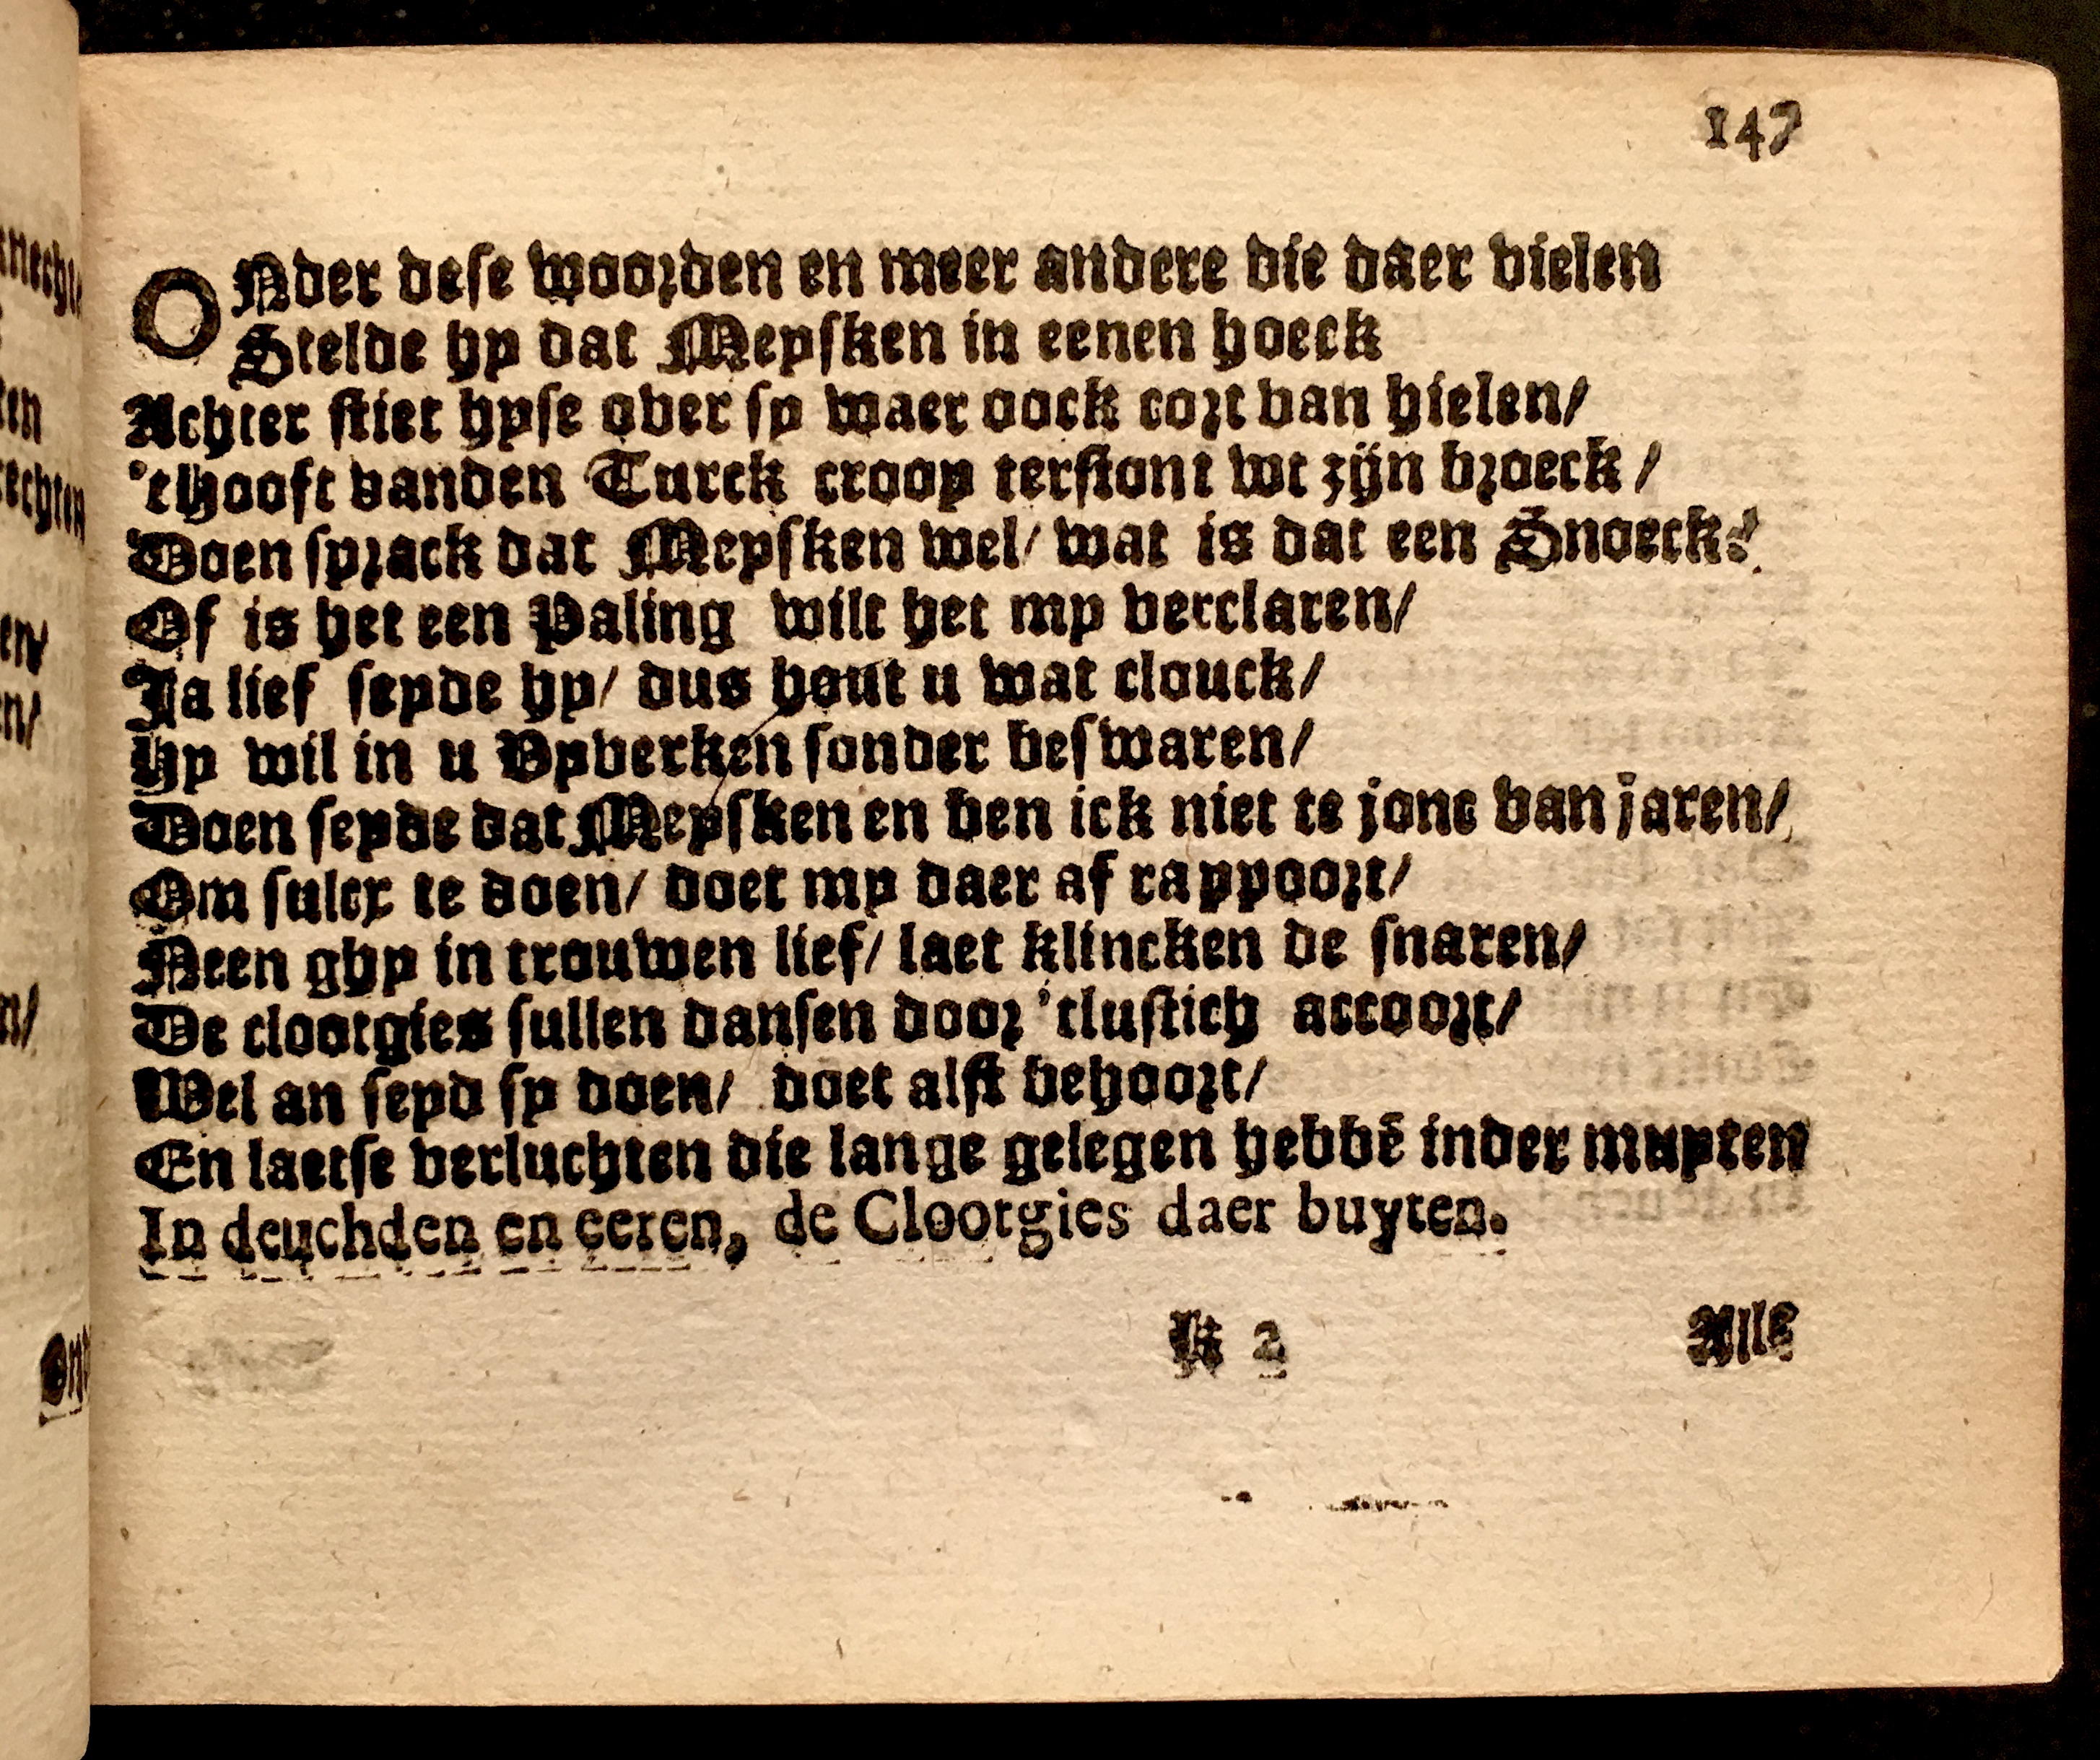 147
ONder dese woorden en meer andere die daer vielen
Stelde hy dat Meysken in eenen hoeck
Achter stiet hyse over sy waer oock cort van hielen/
'tHooft vanden Turck croop terstont wt zijn broeck/
Doen sprack dat Meysken wel/ wat is dat een Snoeck?
Of is het een Paling wilt het my verclaren/
Ja lief seyde hy/ dus hout u wat clouck/
Hy wil in u Vyverken sonder beswaren/
Doen seyde dat Meysken en ben ick niet te jonc van jaren/
Om sulcx te doen/ doet my daer af rappoort/
Neen ghy in trouwen lief/ laet klincken de snaren/
De clootgies sullen dansen door 'tlustich accoort/
Wel an seyd sy doen/ doet alst behoort/
En laetse verluchten die lange gelegen hebbē inder muyten
In deuchden en eeren, de Clootgies daer buyten.
K 2
Alle